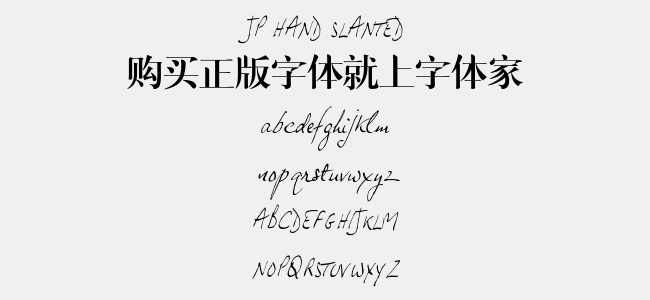 JP HAND SLANTED
购买正版字体就上字体家
abcdefghijklm
nopqrstuvwxyz
ABCDEFGHIJKLM
NOPQRSTUVWXYZ